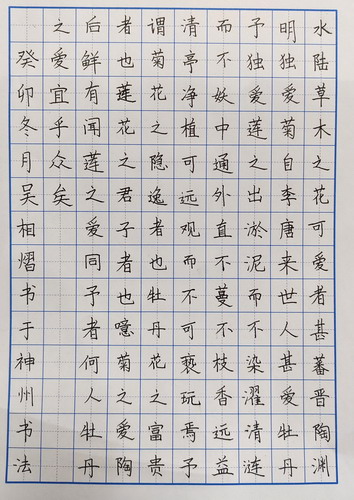 水陆草木之花可爱者甚蕃晋陶渊
明独爱菊自李唐来世人甚爱牡丹
予独爱莲之出淤泥而不染濯清涟
而不妖中通外直不蔓不枝香远益
清亭净植可远观而不可亵玩焉予
谓菊花之隐逸者也牡丹花之富贵
者也莲花之君子者也噫菊之爱陶
后鲜有闻莲之爱同予者何人牡丹
之爱宜乎众矣
癸卯冬月吴相熠书于神州书法